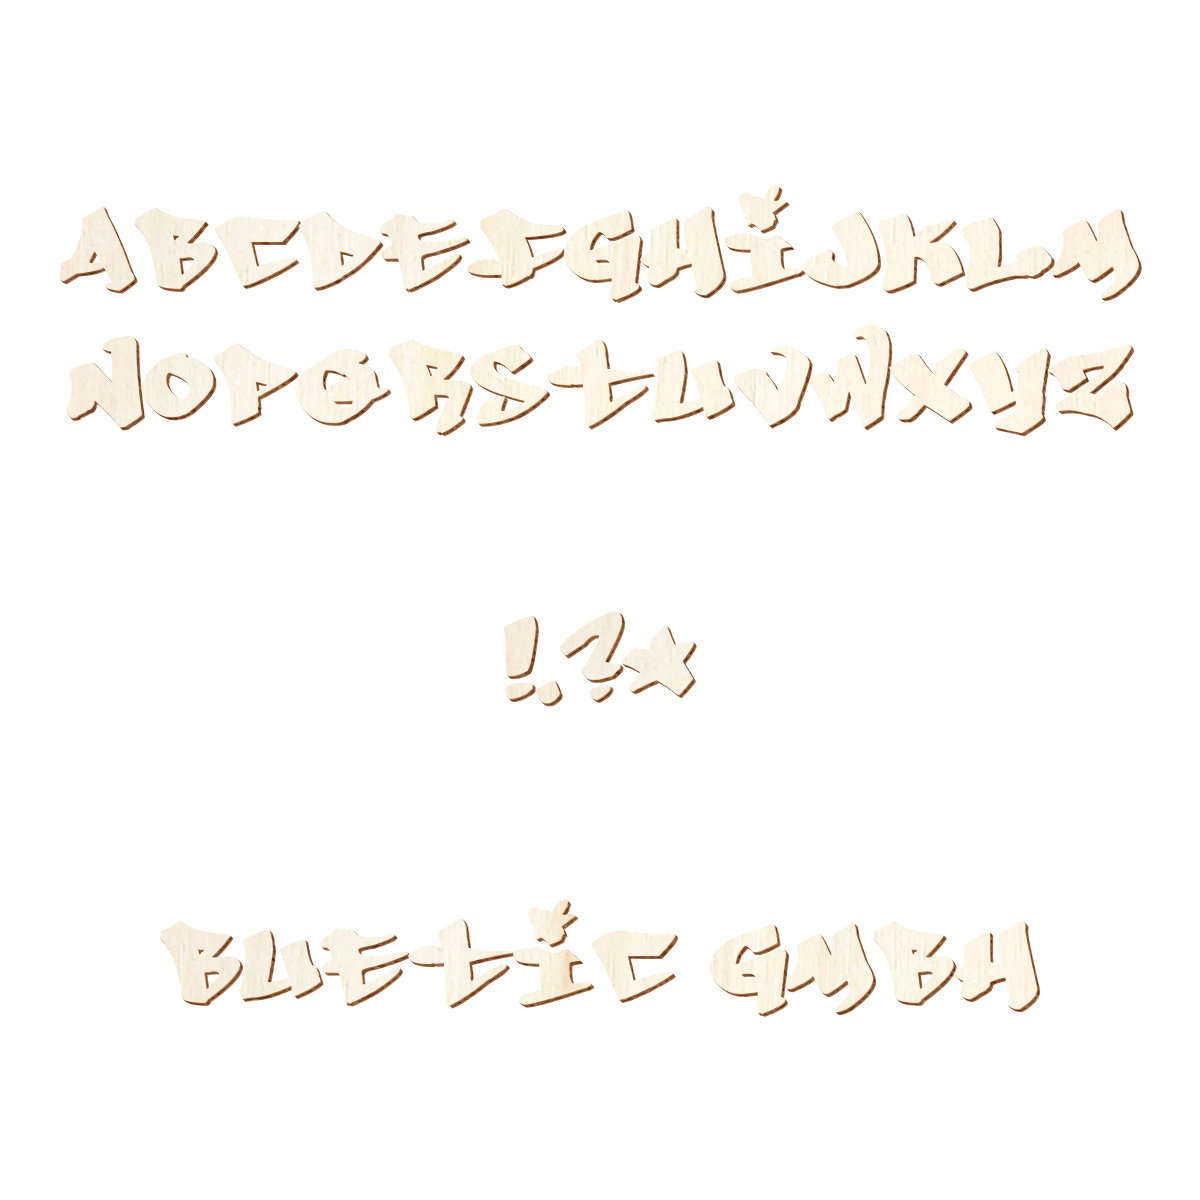 ABCDEFGHIJKLM
NOPQRSTUVWXYZ
!.?★
BUETIC GMBH